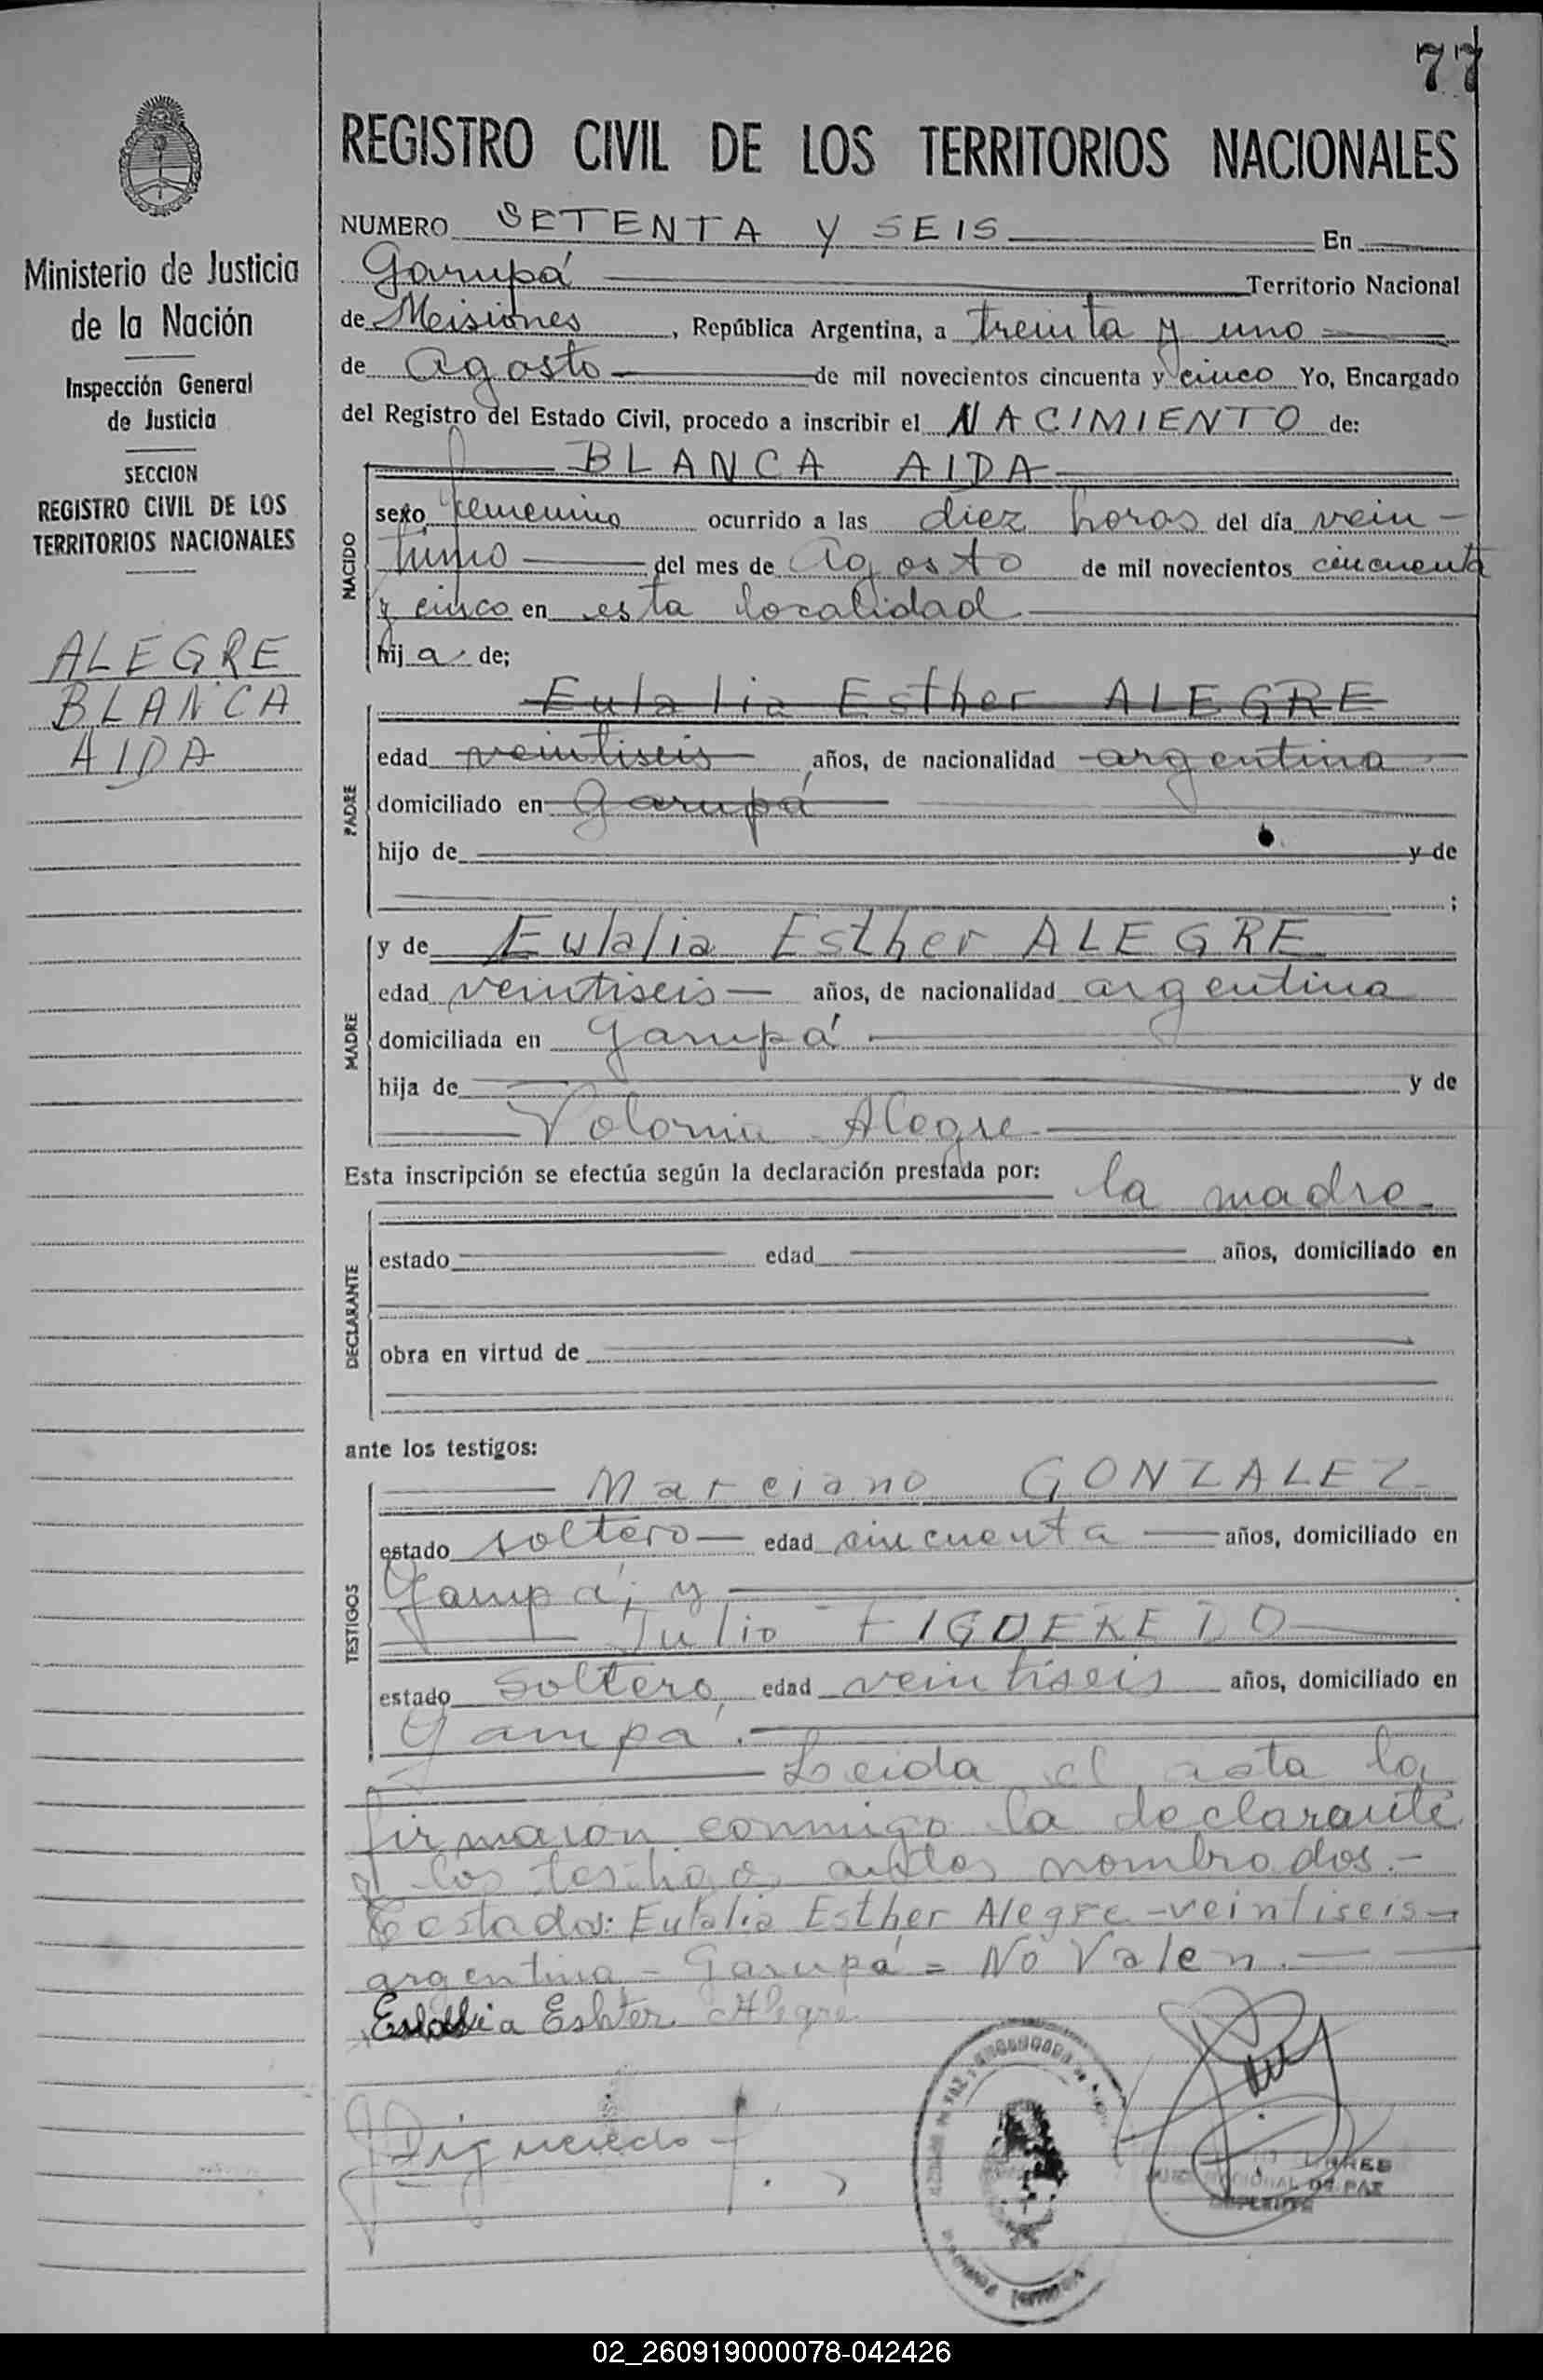 77
REGISTRO CIVIL DE LOS TERRITORIOS NACIONALES
Ministerio de Justicia
de la Nación
Inspección General
de Justicia
SECCION
REGISTRO CIVIL DE LOS
TERRITORIOS NACIONALES
ALEGRE
BLANCA
AIDA
NUMERO SETENTA Y SEIS En
Garupá Territorio Nacional
de Misiones, República Argentina, a treinta y uno
de Agosto de mil novecientos cincuenta y cinco Yo, Encargado
del Registro del Estado Civil, procedo a inscribir el NACIMIENTO de:
NACIDO
BLANCA AIDA
sexo femenino ocurrido a las diez horas del día vein-
tiuno del mes de Agosto de mil novecientos cincuenta
y cinco en esta localidad
hij a de;
PADRE
Eulalia Esther ALEGRE
edad veintiseis años, de nacionalidad argentina
domiciliado en Garupá
hijo de y de
;
MADRE
y de Eulalia Esther ALEGRE
edad veintiseis años, de nacionalidad argentina
domiciliada en Garupá
hija de y de
Polonia Alegre
Esta inscripción se efectúa según la declaración prestada por: la madre
DECLARANTE
estado edad años, domiciliado en
obra en virtud de
ante los testigos:
TESTIGOS
Marciano GONZALEZ
estado soltero edad cincuenta años, domiciliado en
Garupá; y
Julio FIGUEREDO
estado soltero, edad veintiseis años, domiciliado en
Garupá.
Leida el acta la
firmaron conmigo la declarante
y los testigos antes nombrados.-
Testados: Eulalia Esther Alegre-veintiseis-
argentina - Garupá = No Valen.
Eulalia Eshter Alegre
Figueredo
LINARES
DE PAZ
SUPLENTE
02_260919000078-042426